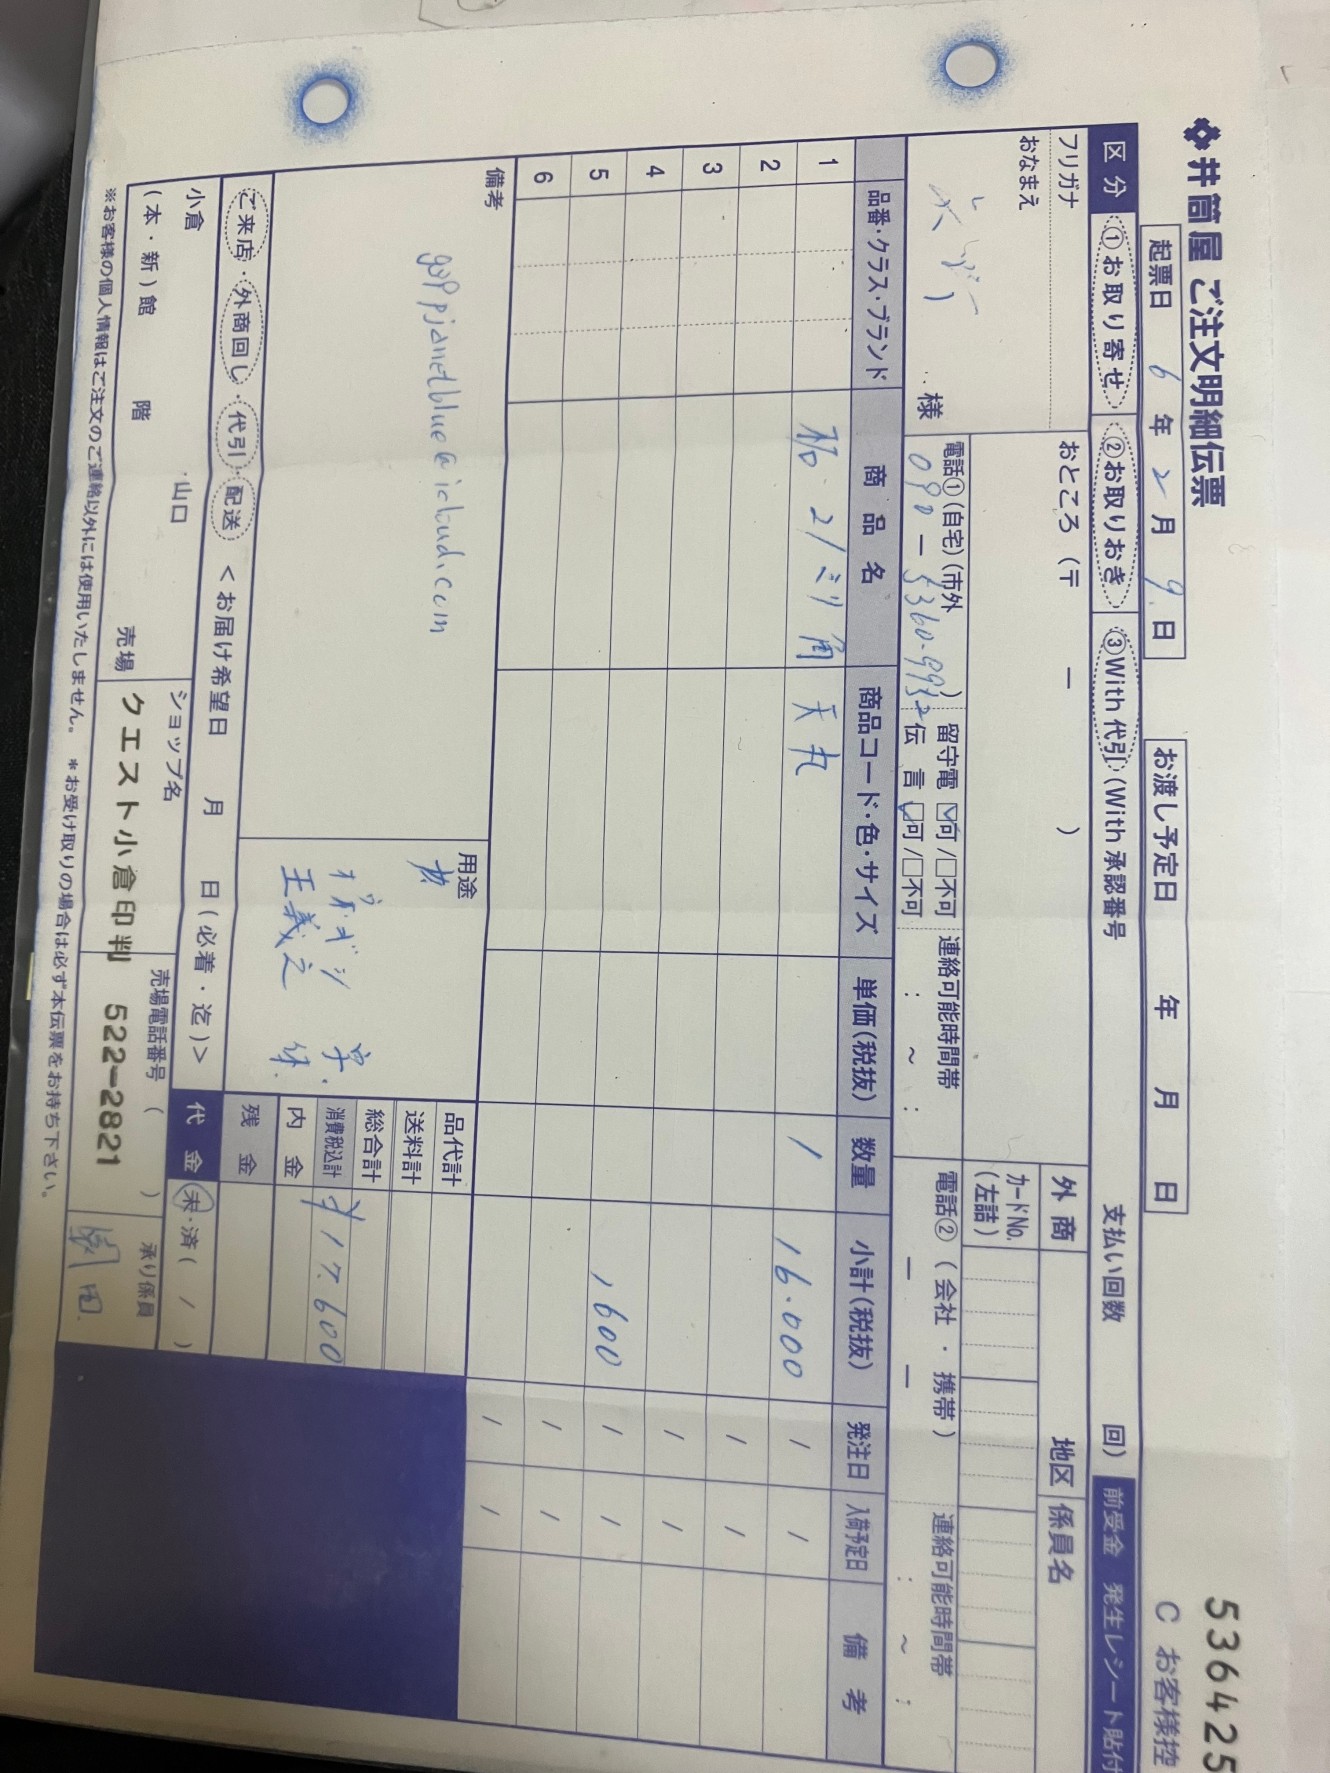 井筒屋 ご注文明細伝票
536425
C お客様控
起票日 6年2月9日
お渡し予定日 年 月 日
区分 ①お取り寄せ ②お取りおき ③With代引(With承認番号 支払い回数 回)
前受金 発生レシート貼付
フリガナ
おなまえ
様
おところ(〒 - )
外商 地区 係員名
カードNo.
(左詰)
電話①(自宅)(市外 )
090-5360-9932
留守電 可/不可
伝言 可/不可
連絡可能時間帯
: ~ :
電話②(会社・携帯)
- -
連絡可能時間帯
: ~ :
品番・クラス・ブランド 商品名 商品コード・色・サイズ 単価(税抜) 数量 小計(税抜) 発注日 入荷予定日 備考
1 柘・21ミリ角 天丸 1 16.000 / /
2 / /
3 / /
4 / /
5 1600 / /
6 / /
備考
用途
王義之
品代計
送料計
総合計
消費税込計 ¥17.600
内金
残金
代金 未・済( / )
ご来店・外商回し・代引・配送 <お届け希望日 月 日(必着・迄)>
小倉
(本・新)館 階
・山口
売場
ショップ名
クエスト小倉印判
売場電話番号( )
522-2821
承り係員
※お客様の個人情報はご注文のご連絡以外には使用いたしません。 *お受け取りの場合は必ず本伝票をお持ち下さい。